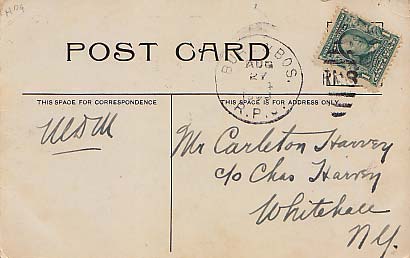 POST CARD
AUG
27
R.P.O.
RMS
THIS SPACE FOR CORRESPONDENCE
THIS SPACE IS FOR ADDRESS ONLY
Mr Carleton Harvey
c/o Chas Harvey
Whitehall
N.Y.